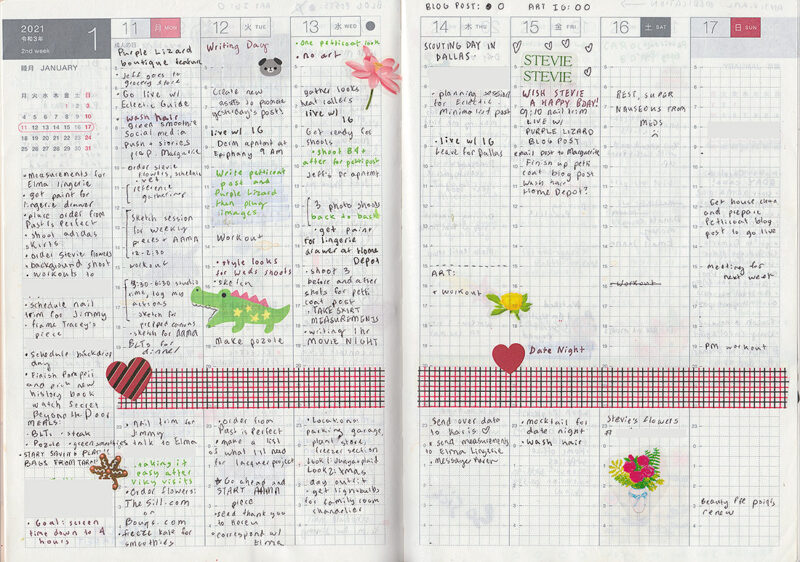 2021
令和3年
2nd week
1
睦月 JANUARY
月 火 水 木 金 土 日
1 2 3
4 5 6 7 8 9 10
11 12 13 14 15 16 17
18 19 20 21 22 23 24
25 26 27 28 29 30 31
• measurements for
Elma lingerie
• get paint for
lingerie drawer
• place order from
Past is Perfect
• shoot adidas
skirts
• order Stevie flowers
• background shoot
• workouts to
• schedule nail
trim for Jimmy
• frame Tracey's
piece
• Schedule backdrop
day
• Finish Pompeii
and pick new
history book
watch Secret
Beyond the Door
MEALS:
• BLTs • steak
• Pozole • green smoothies
• START SAVING PLASTIC
BAGS FROM
• Goal: screen
time down to 4
hours
11 月 MON
成人の日
Purple Lizard
boutique feature
• Jeff goes to
grocery store
• Go live w/
Eclectic Guide
• wash hair
green smoothie
Social media
Push + stories
prep Marguerite
order Stevie
flowers,
reference
gathering
Sketch session
for weekly
pieces + AAMA
12-2:30
workout
3:30-6:30 studio
time,
sketch for
• sketch for AAMA
BLTs for
dinner
• nail trim for
Jimmy
• talk to Elma
• taking it
easy after
Vicky visits
• Order flowers:
The Sill.com
or
Bouqs.com
• freeze kale for
smoothies
12 火 TUE
Writing Day
Create new
assets to promote
yesterday's posts
live w/ IG
Derm apntmt at
Epiphany 9 AM
Write petticoat
post and
Purple Lizard
then plug
images
Workout
• style looks
for Weds shoots
• sketch
make pozole
• order from
Past is Perfect
• make a list
of what I'll need
for lacquer project
Go ahead and
START AAMA
piece
• send thank you
to
• correspond w/
Elma
13 水 WED
• One petticoat look
• no art
gather looks
heat rollers
live w/
IG
Got ready for
shoots
• shoot B4 +
after for petti post
Jeff's Dr apntmt
3 photo shoots
back to back!
• get paint
for lingerie
drawer at Home
Depot
• shoot 3
before and after
shots for petti
coat post
• TAKE SKIRT
MEASUREMENTS
• writing the
MOVIE NIGHT
• Locations:
parking garage,
plant store,
freezer section
Look 1:
Look 2: xmas
day outfit
• get lightbulbs
for family room
chandelier
BLOG POST: ● O
ART IG: O O
14 木 THU
SCOUTING DAY IN
DALLAS
• planning session
for Eclectic
Minimalist post
• live w/ IG
Leave for Dallas
ART:
• Workout
Send over data
to Karis ♡
• send measurements
to Elma Lingerie
• Message Karen
15 金 FRI
STEVIE
STEVIE
WISH STEVIE
A HAPPY BDAY!
9:10 nail trim
LIVE w/
PURPLE LIZARD
BLOG POST
email post to Marguerite
Finish up petti
coat blog post
Wash hair
Home Depot?
Date Night
• mocktail for
date night
• Wash hair
16 土 SAT
REST, SUPER
NAUSEOUS FROM
MEDS
Workout
Stevie's flowers
17 日 SUN
Get house clean
and prepare
Petticoat blog
post to go live
meeting for
next week
PM workout
Beauty Pie points
renew